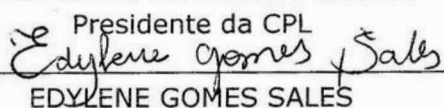 Presidente da CPL
Edylene Gomes Sales
EDYLENE GOMES SALES